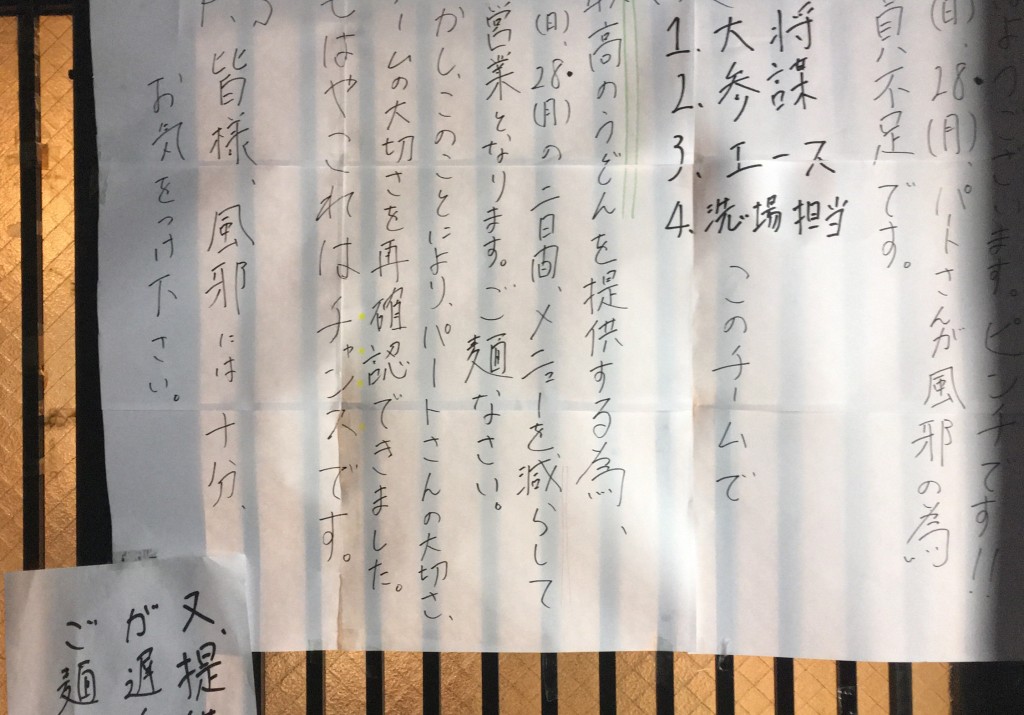 はようございます。ピンチです!!
(日)、28(月)、パートさんが風邪の為
員不足です。
1. 大将
2. 参謀
3. エース
4. 洗い場担当
このチームで
最高のうどんを提供する為、
(日)、28(月)の二日間、メニューを減らして
営業となります。ご麺なさい。
かし、このことにより、パートさんの大切さ、
ームの大切さを再確認できました。
もはやこれはチャンスです。
皆様、風邪には十分、
お気をつけ下さい。
又、提
が遅
ご麺